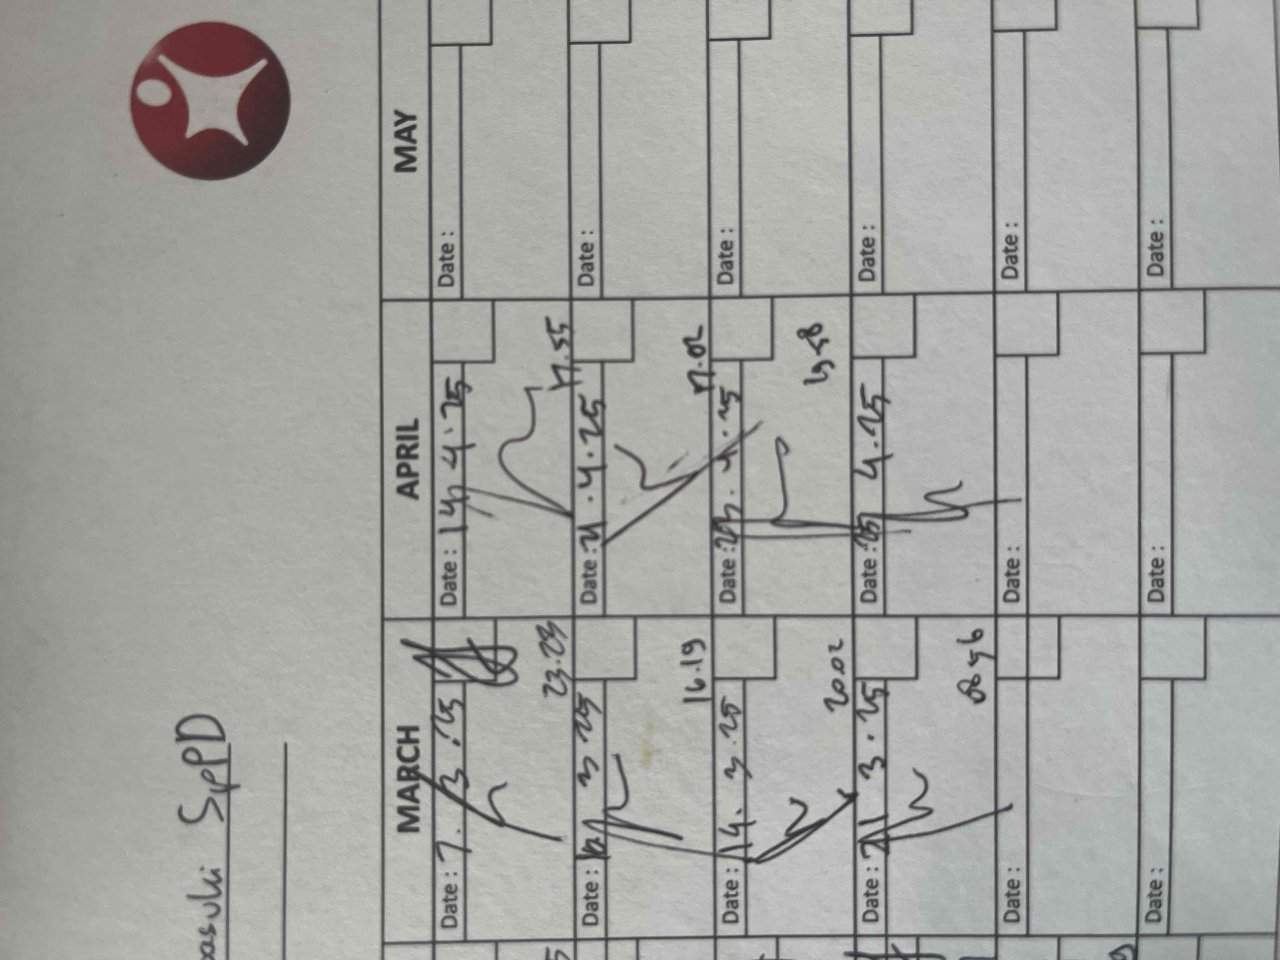 basuki SpPD
MARCH APRIL MAY
Date : 7. 3 . 25
Date : 14 4 . 25
Date :
23.23
17.55
Date : 3 25
Date : 21 . 4 . 25
Date :
16.19
17.02
Date : 14. 3 . 25
Date : 23 . 4 . 25
Date :
20.02
Date : 21 3 . 25
Date : 25 4 . 25
Date :
Date :
Date :
Date :
Date :
Date :
Date :